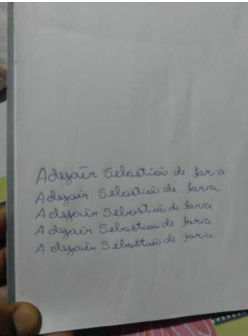 Adejair Sebastião de faria
Adejair Sebastião de faria
Adejair Sebastião de faria
Adejair Sebastião de faria
Adejair Sebastião de faria